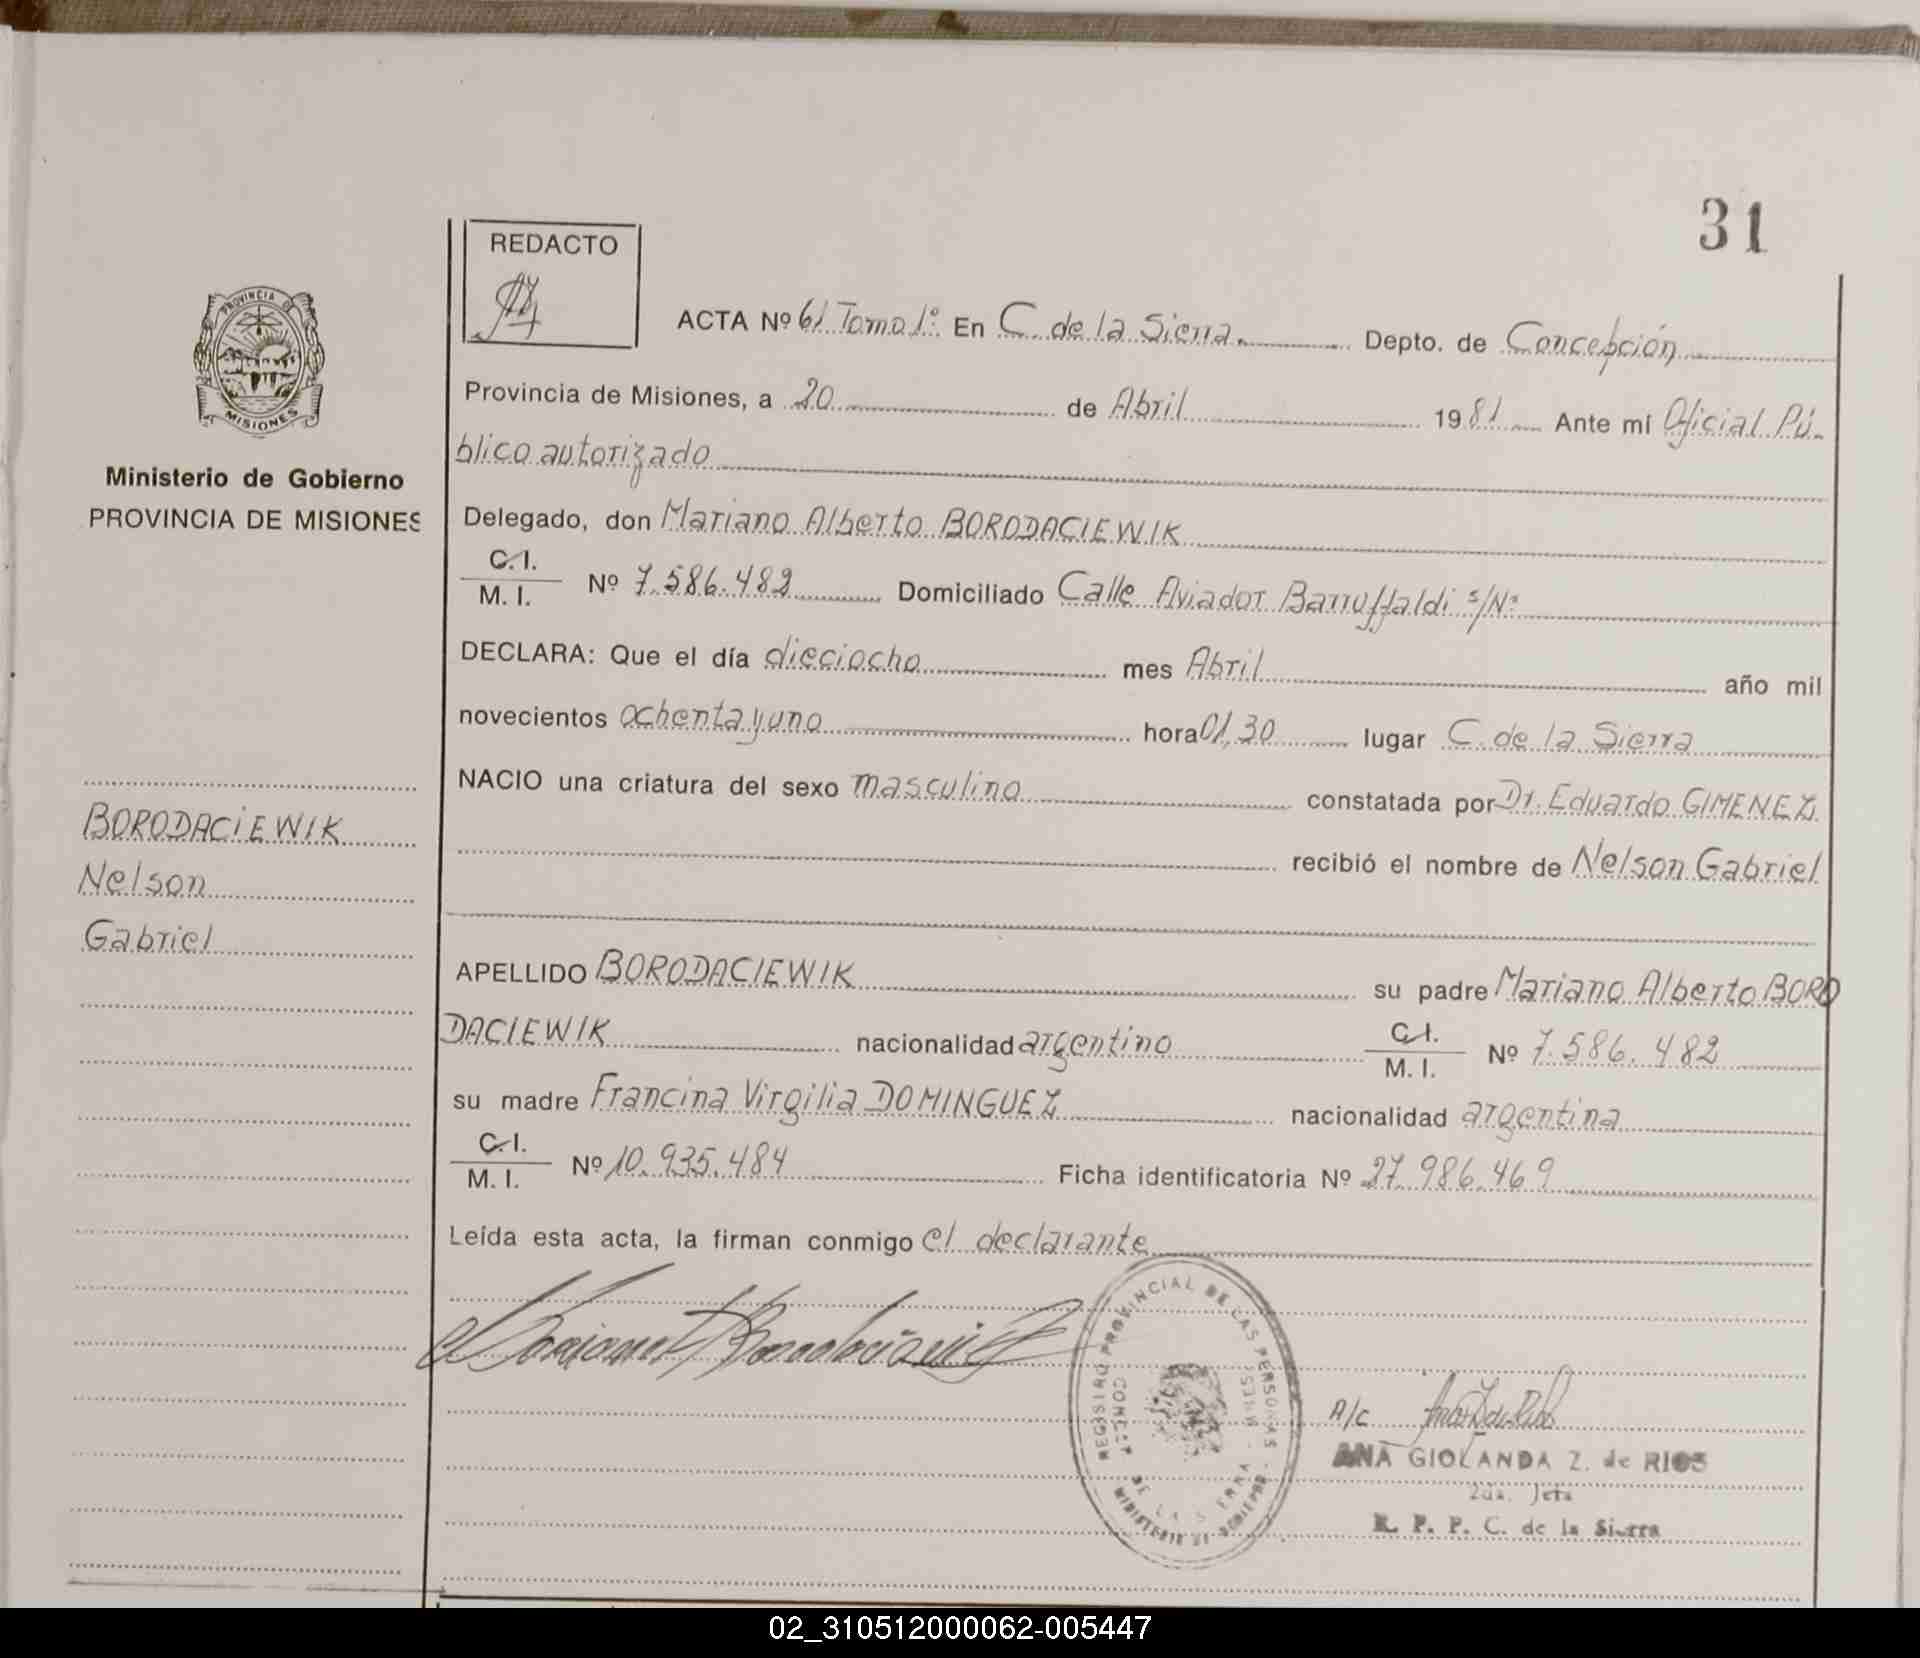 31
REDACTO
ACTA Nº 61 Tomo 1º En C. de la Sierra. Depto. de Concepción
Provincia de Misiones, a 20 de Abril 1981 Ante mí Oficial Pú-
blico autorizado
PROVINCIA DE
MISIONES
Ministerio de Gobierno
PROVINCIA DE MISIONES
Delegado, don Mariano Alberto BORODACIEWIK
C.I.
M. I. Nº 7.586.482 Domiciliado Calle Aviador Barruffaldi s/Nº
DECLARA: Que el día dieciocho mes Abril año mil
novecientos ochenta y uno hora 01,30 lugar C. de la Sierra
NACIO una criatura del sexo masculino constatada por Dr. Eduardo GIMENEZ
recibió el nombre de Nelson Gabriel
BORODACIEWIK
Nelson
Gabriel
APELLIDO BORODACIEWIK su padre Mariano Alberto BORO
DACIEWIK nacionalidad argentino C.I.
M. I. Nº 7.586.482
su madre Francina Virgilia DOMINGUEZ nacionalidad argentina
C.I.
M. I. Nº 10.935.484 Ficha identificatoria Nº 27.986.469
Leída esta acta, la firman conmigo el declarante
REGISTRO PROVINCIAL DE LAS PERSONAS
MINISTERIO DE GOBIERNO
DE LA SIERRA
A/c
ANA GIOLANDA Z. de RIOS
2da. Jefa
R. P. P. C. de la Sierra
02_310512000062-005447